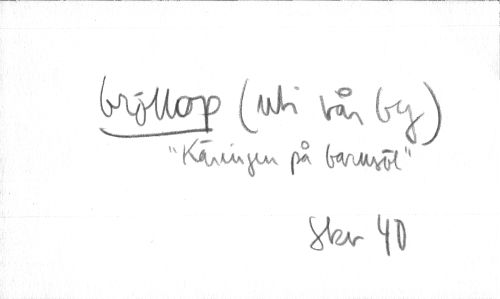 bröllop (uti vår by)
"Käringen på barnsöl"
Skr 40